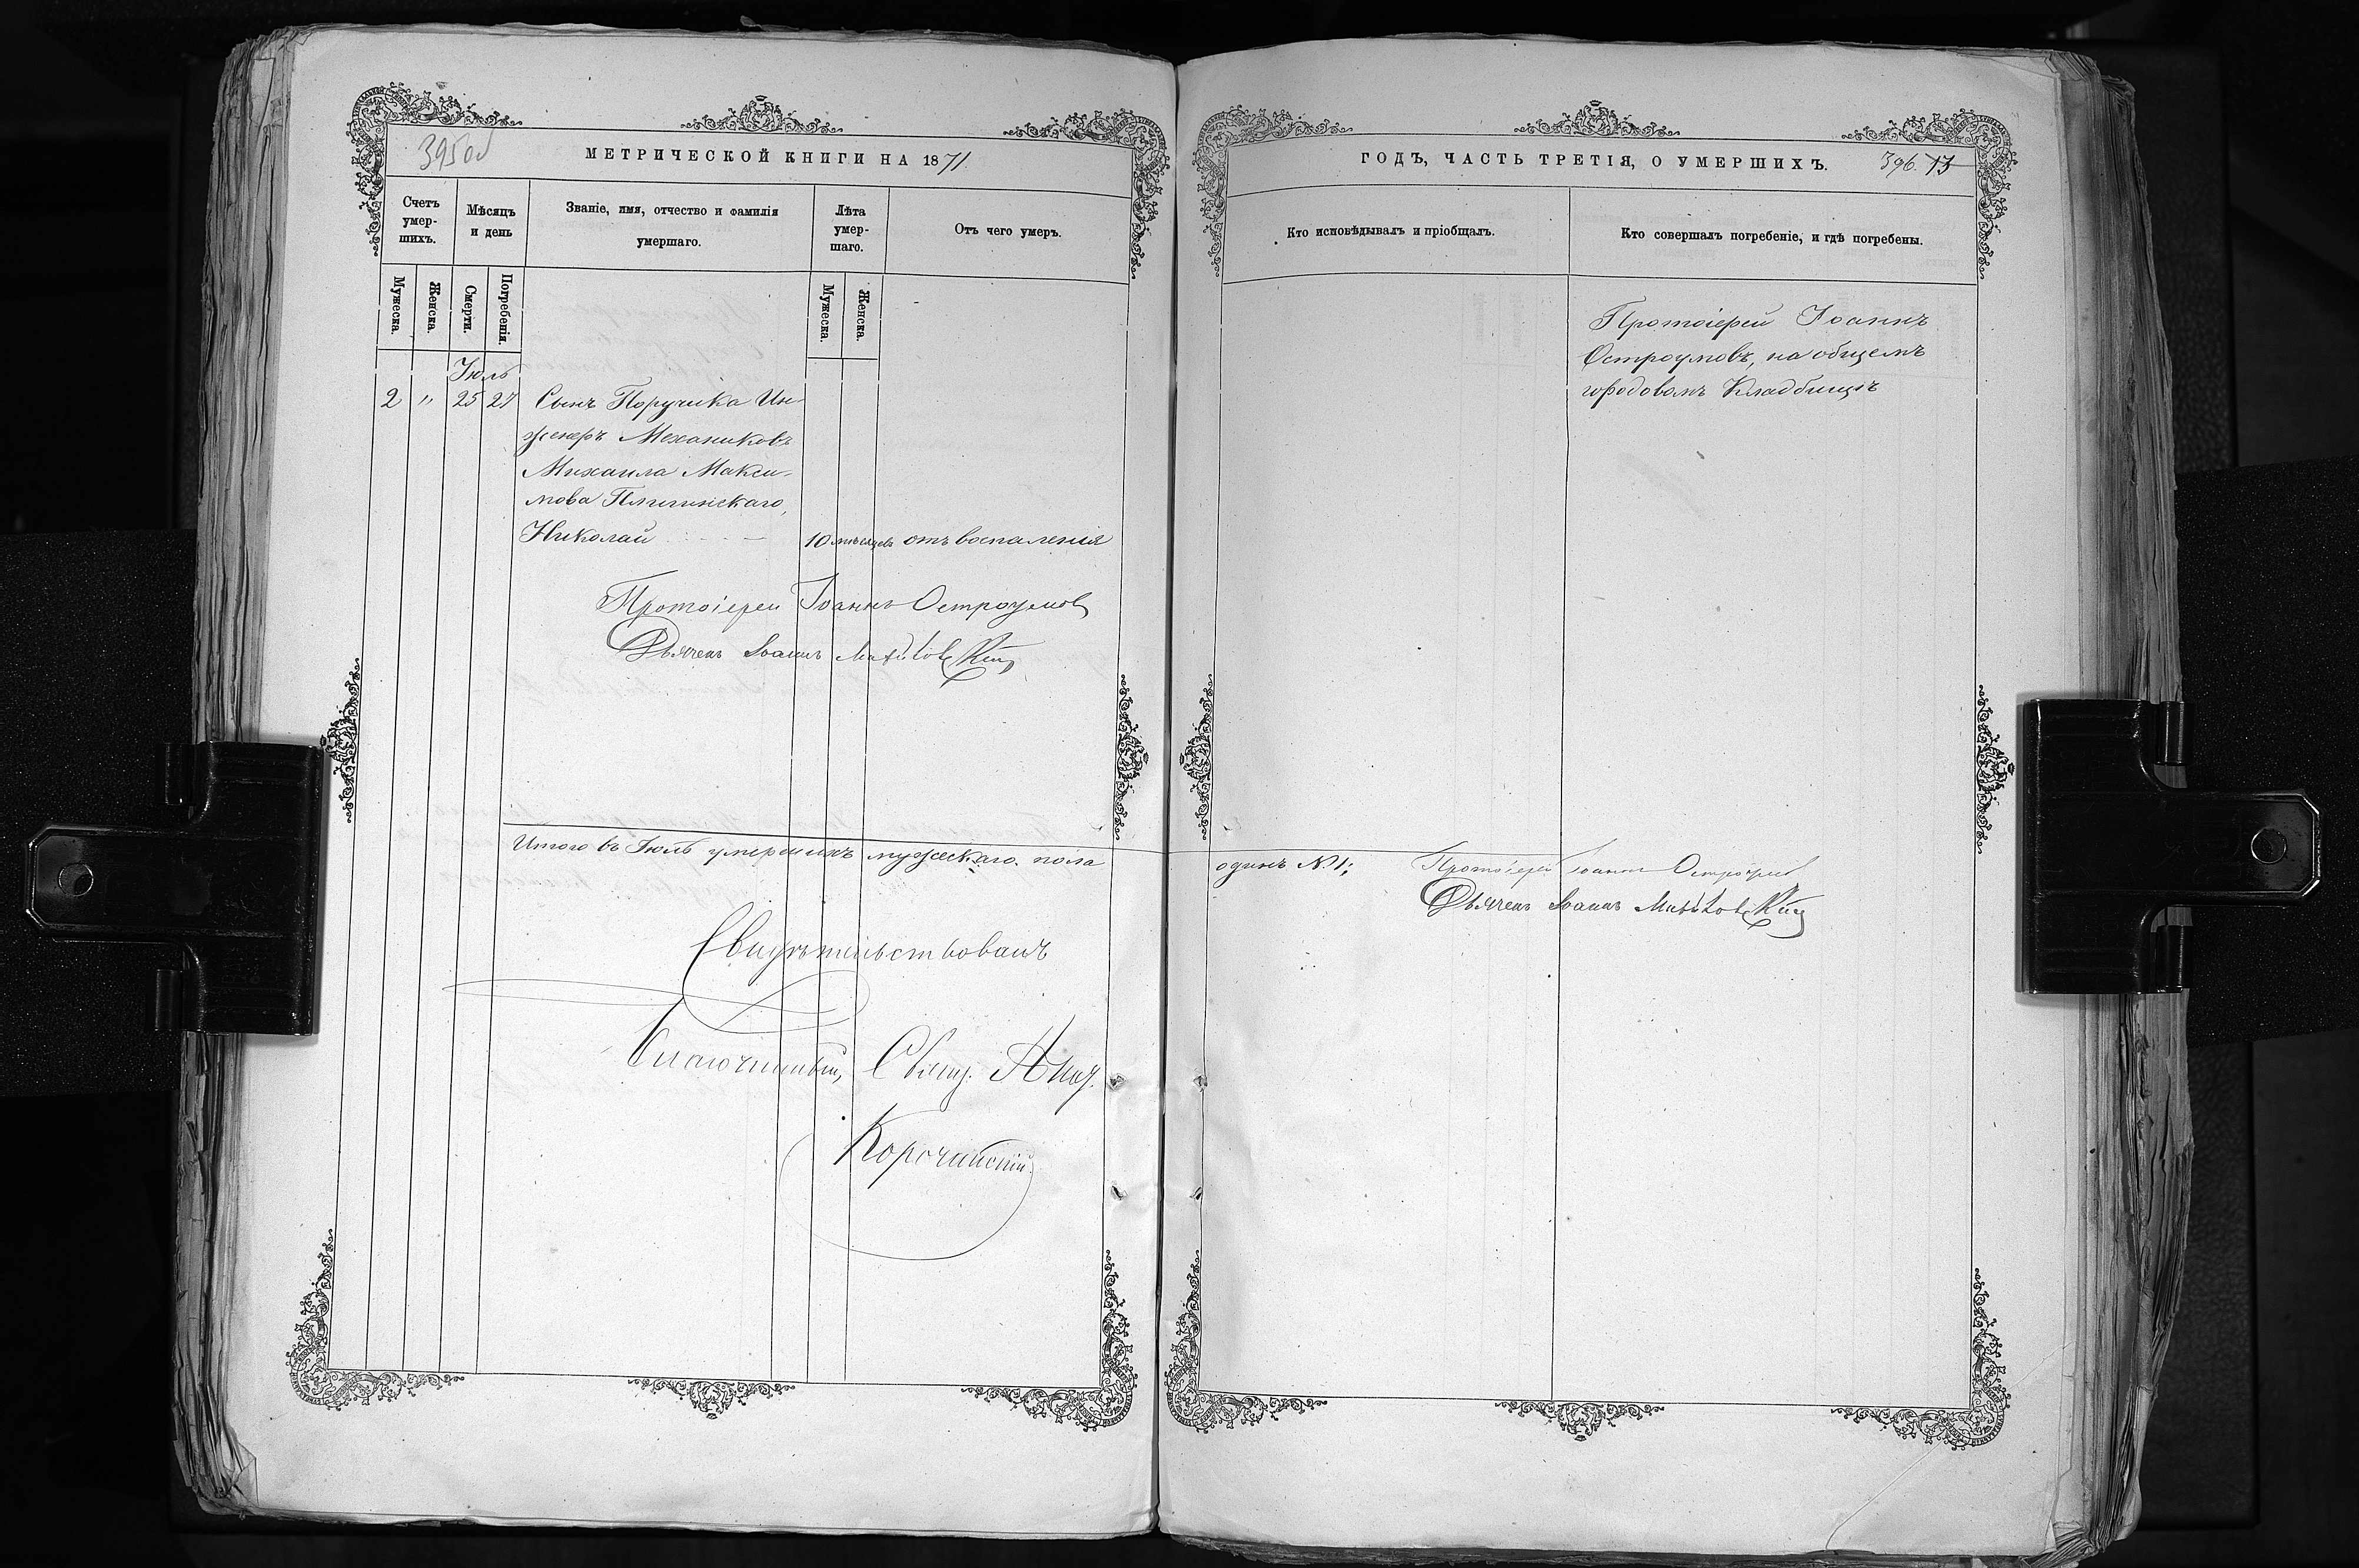 395об
МЕТРИЧЕСКОЙ КНИГИ НА 1871
Счетъ умер-шихъ.
Мѣсяцъ и день
Званіе, имя, отчество и фамилія умершаго.
Лѣта умер-шаго.
Отъ чего умеръ.
Мужеска.
Женска.
Смерти.
Погребенія.
Мужеска.
Женска.
Іюль
2 " 25 27 Сынъ Поручика Ин-
женеръ Механиковъ
Михаила Макси-
мова
Николай 10 мѣсяцевъ отъ воспаленія
Протоіерей Іоаннъ Остроумовъ
Дьячекъ Іоаннъ
Итого въ Іюль умершихъ мужескаго пола
Свидѣтельствовалъ
Благочинный, Свящ. Анд.
Корочанскій.
ГОДЪ, ЧАСТЬ ТРЕТІЯ, О УМЕРШИХЪ.
396. 13
Кто исповѣдывалъ и пріобщалъ.
Кто совершалъ погребеніе, и гдѣ погребены.
Протоіерей Іоаннъ
Остроумовъ, на общемъ
городовомъ Кладбищѣ
одинъ №1; Протоіерей Іоаннъ Остроумовъ
Дьячекъ Іоаннъ